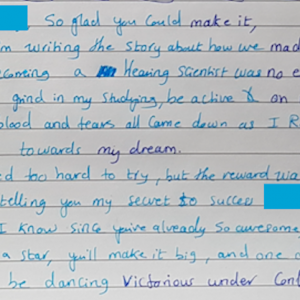 So glad you could make it,
m writing the story about how we mad
ecoming a Hearing Scientist was no e
grind in my studying, be achive & on
blood and tears all came down as I R
towards my dream.
ed too hard to try, but the reward wa
telling you my secret to success
I know since you've already so awesome
a star, you'll make it big, and one d
be dancing Victorious under Con